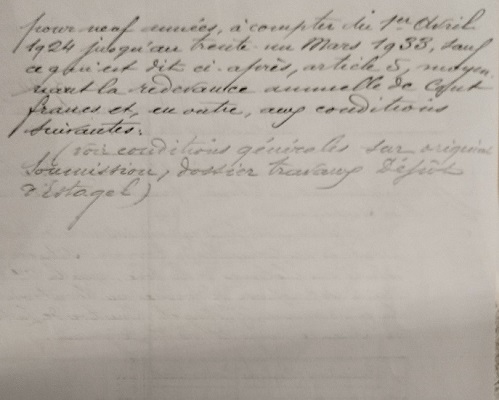 pour neuf années, à compter du 1er Avril
1924 jusqu'au trente-un Mars 1933, sauf
ce qui est dit ci-après, article 5, moyen-
nant la redevance annuelle de Cent
francs et, en outre, aux conditions
suivantes:
(voir conditions générales sur original
soumission, dossier travaux Dépôt
d'Estagel)